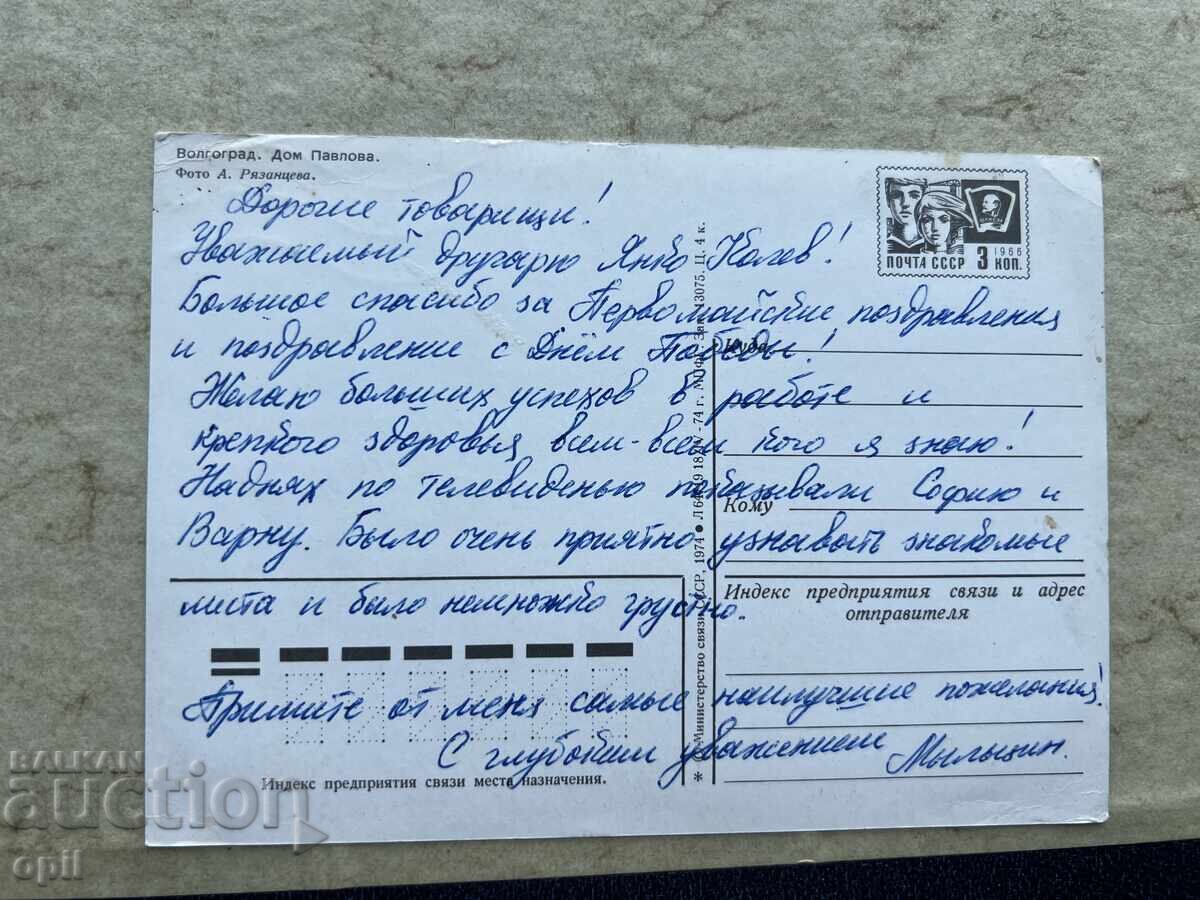 Волгоград. Дом Павлова.
Фото А. Рязанцева.
Дорогие товарищи!
Уважаемый другарю Янко Колев!
Большое спасибо за Первомайские поздравления
и поздравление с Днём Победы!
Желаю больших успехов в работе и
крепкого здоровья всем-всем кого я знаю!
На днях по телевиденью показывали Софию и
Варну. Было очень приятно узнавать знакомые
места и было немножко грустно.
Примите от меня самые наилучшие пожелания!
С глубоким уважением Мыльцин.
ПОЧТА СССР 3 КОП.
1966
ВЛКСМ
Куда
Кому
Индекс предприятия связи и адрес
отправителя
Индекс предприятия связи места назначения.
* © Министерство связи СССР, 1974 ● -74 г. 13075. Ц. 4 к.
BALKAN
auction
opil